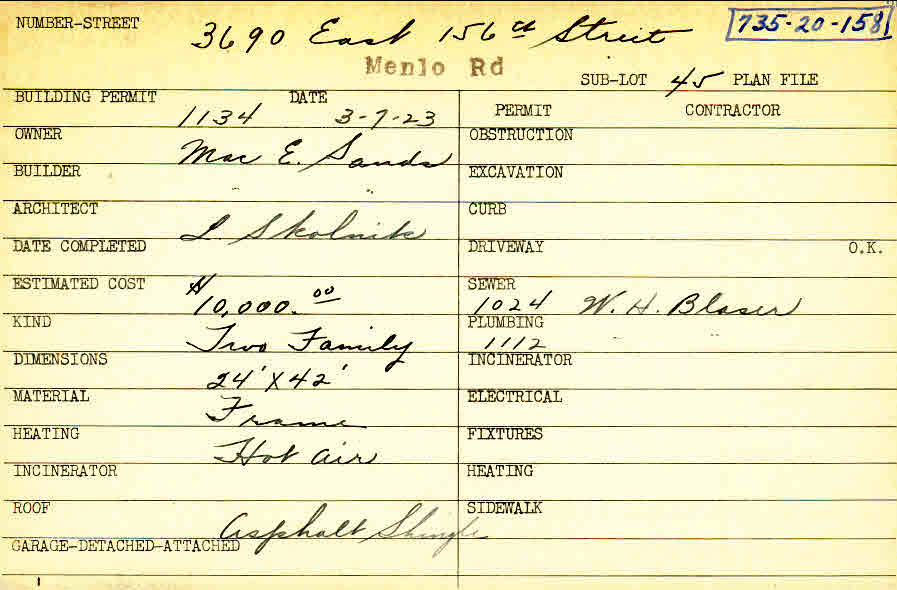 NUMBER-STREET 3690 East 156th Street 735-20-158
Menlo Rd
SUB-LOT 45 PLAN FILE
BUILDING PERMIT 1134 DATE 3-7-23
PERMIT CONTRACTOR
OWNER Mac E. Sands
OBSTRUCTION
BUILDER " "
EXCAVATION
ARCHITECT L Skolnik
CURB
DATE COMPLETED
DRIVEWAY O.K.
ESTIMATED COST $10,000.00
SEWER 1024 W. H. Blaser
KIND Two Family
PLUMBING 1112 " "
DIMENSIONS 24' X 42'
INCINERATOR
MATERIAL Frame
ELECTRICAL
HEATING Hot Air
FIXTURES
INCINERATOR
HEATING
ROOF Asphalt Shingle
SIDEWALK
GARAGE-DETACHED-ATTACHED